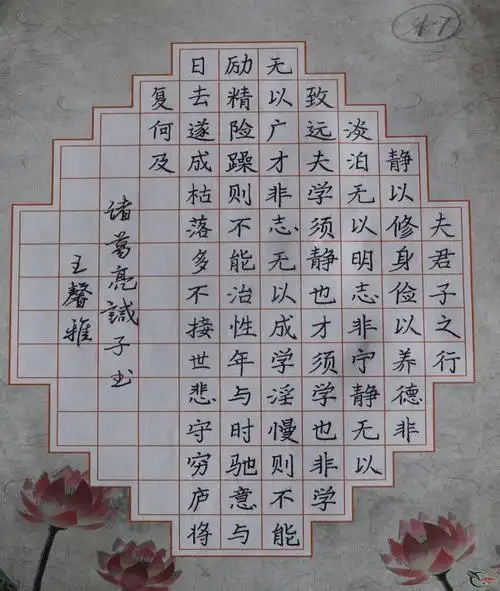 夫君子之行
静以修身俭以养德非
淡泊无以明志非宁静无以
致远夫学须静也才须学也非学
无以广才非志无以成学淫慢则不能
励精险躁则不能治性年与时驰意与
日去遂成枯落多不接世悲守穷庐将
复何及
诸葛亮誡子书
王馨雅